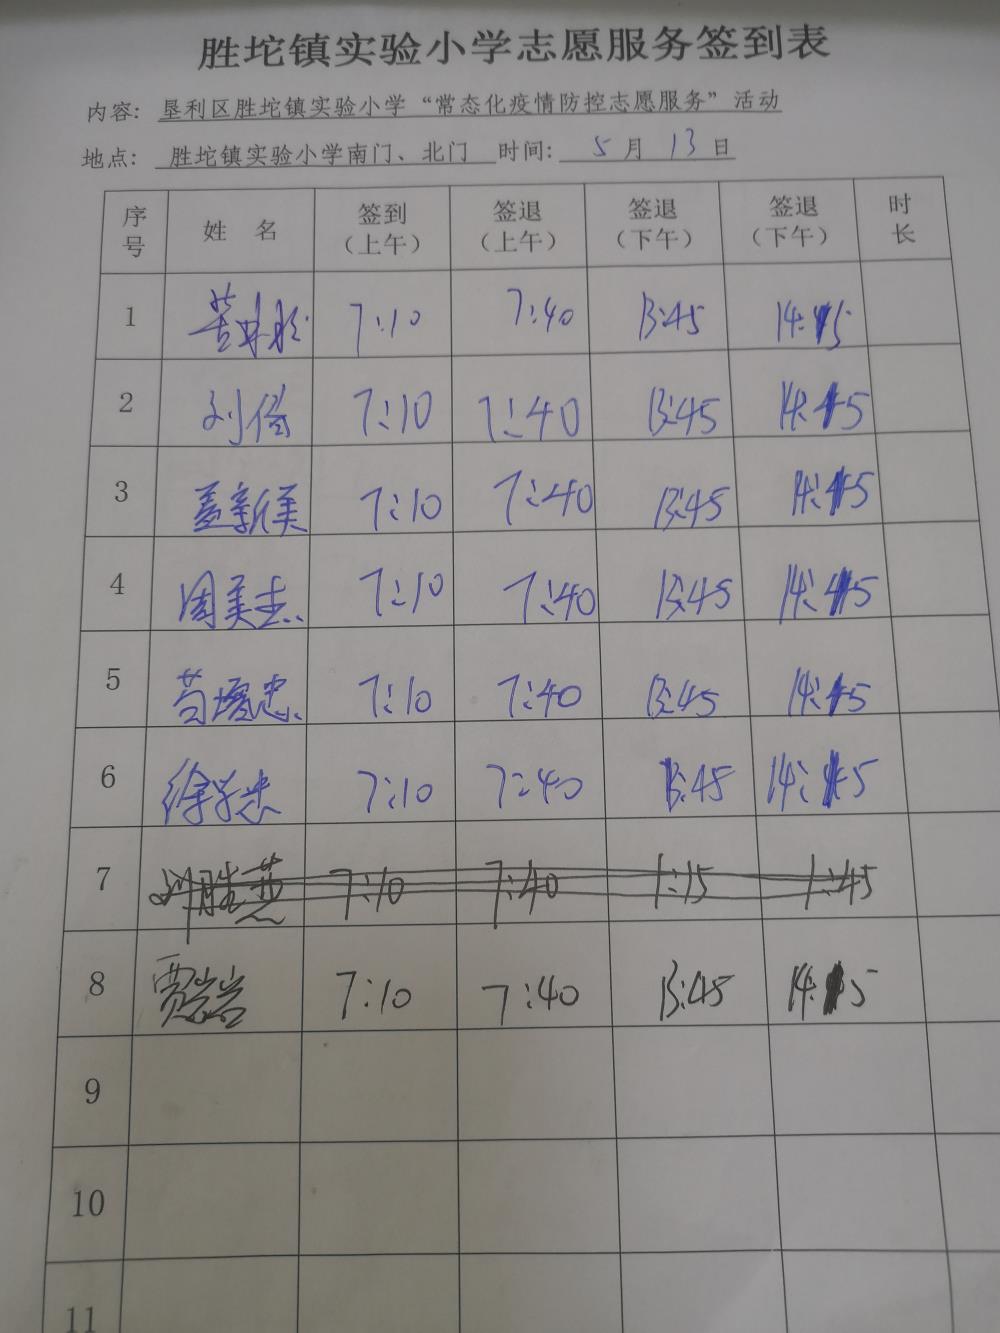 胜坨镇实验小学志愿服务签到表
内容: 垦利区胜坨镇实验小学“常态化疫情防控志愿服务”活动
地点: 胜坨镇实验小学南门、北门 时间: 5 月 13 日
序号 姓 名 签到(上午) 签退(上午) 签退(下午) 签退(下午) 时长
1 7:10 7:40 13:45 14:15
2 刘倩 7:10 7:40 13:45 14:15
3 盖新美 7:10 7:40 13:45 14:15
4 周美杰 7:10 7:40 13:45 14:15
5 苟增忠 7:10 7:40 13:45 14:15
6 徐学忠 7:10 7:40 13:45 14:15
7 刘胜燕 7:10 7:40 1:15 1:45
8 贾岩岩 7:10 7:40 13:45 14:15
9
10
11